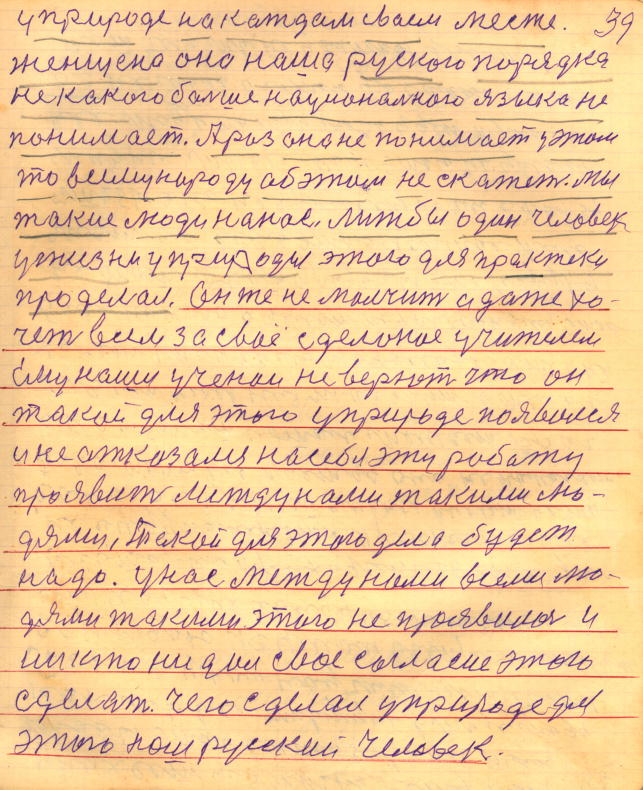 у природе на каждам своем месте. 39
женщена она наша руского порядка
некакого болше национального языка не
понимает. А раз она не понимает у этом
то всему народу аб этом не скажет. Мы
такие люди на нас, лишбы один человек
у жизни у природи этого для практеки
проделал. Он же не молчит а даже хо-
чет всем за своё сделоное учителем
Ему наши ученаи не верют что он
такой для этого у природе появился
и не атказался на себя эту работу
проявит между нами такими лю-
дями, Такой для этого дела будет
надо. У нас между нами всеми лю-
дями такими этого не проявилос и
никто ни дал свое согласие этого
сделат. Чего сделал у природе для
этого наш русский человек.